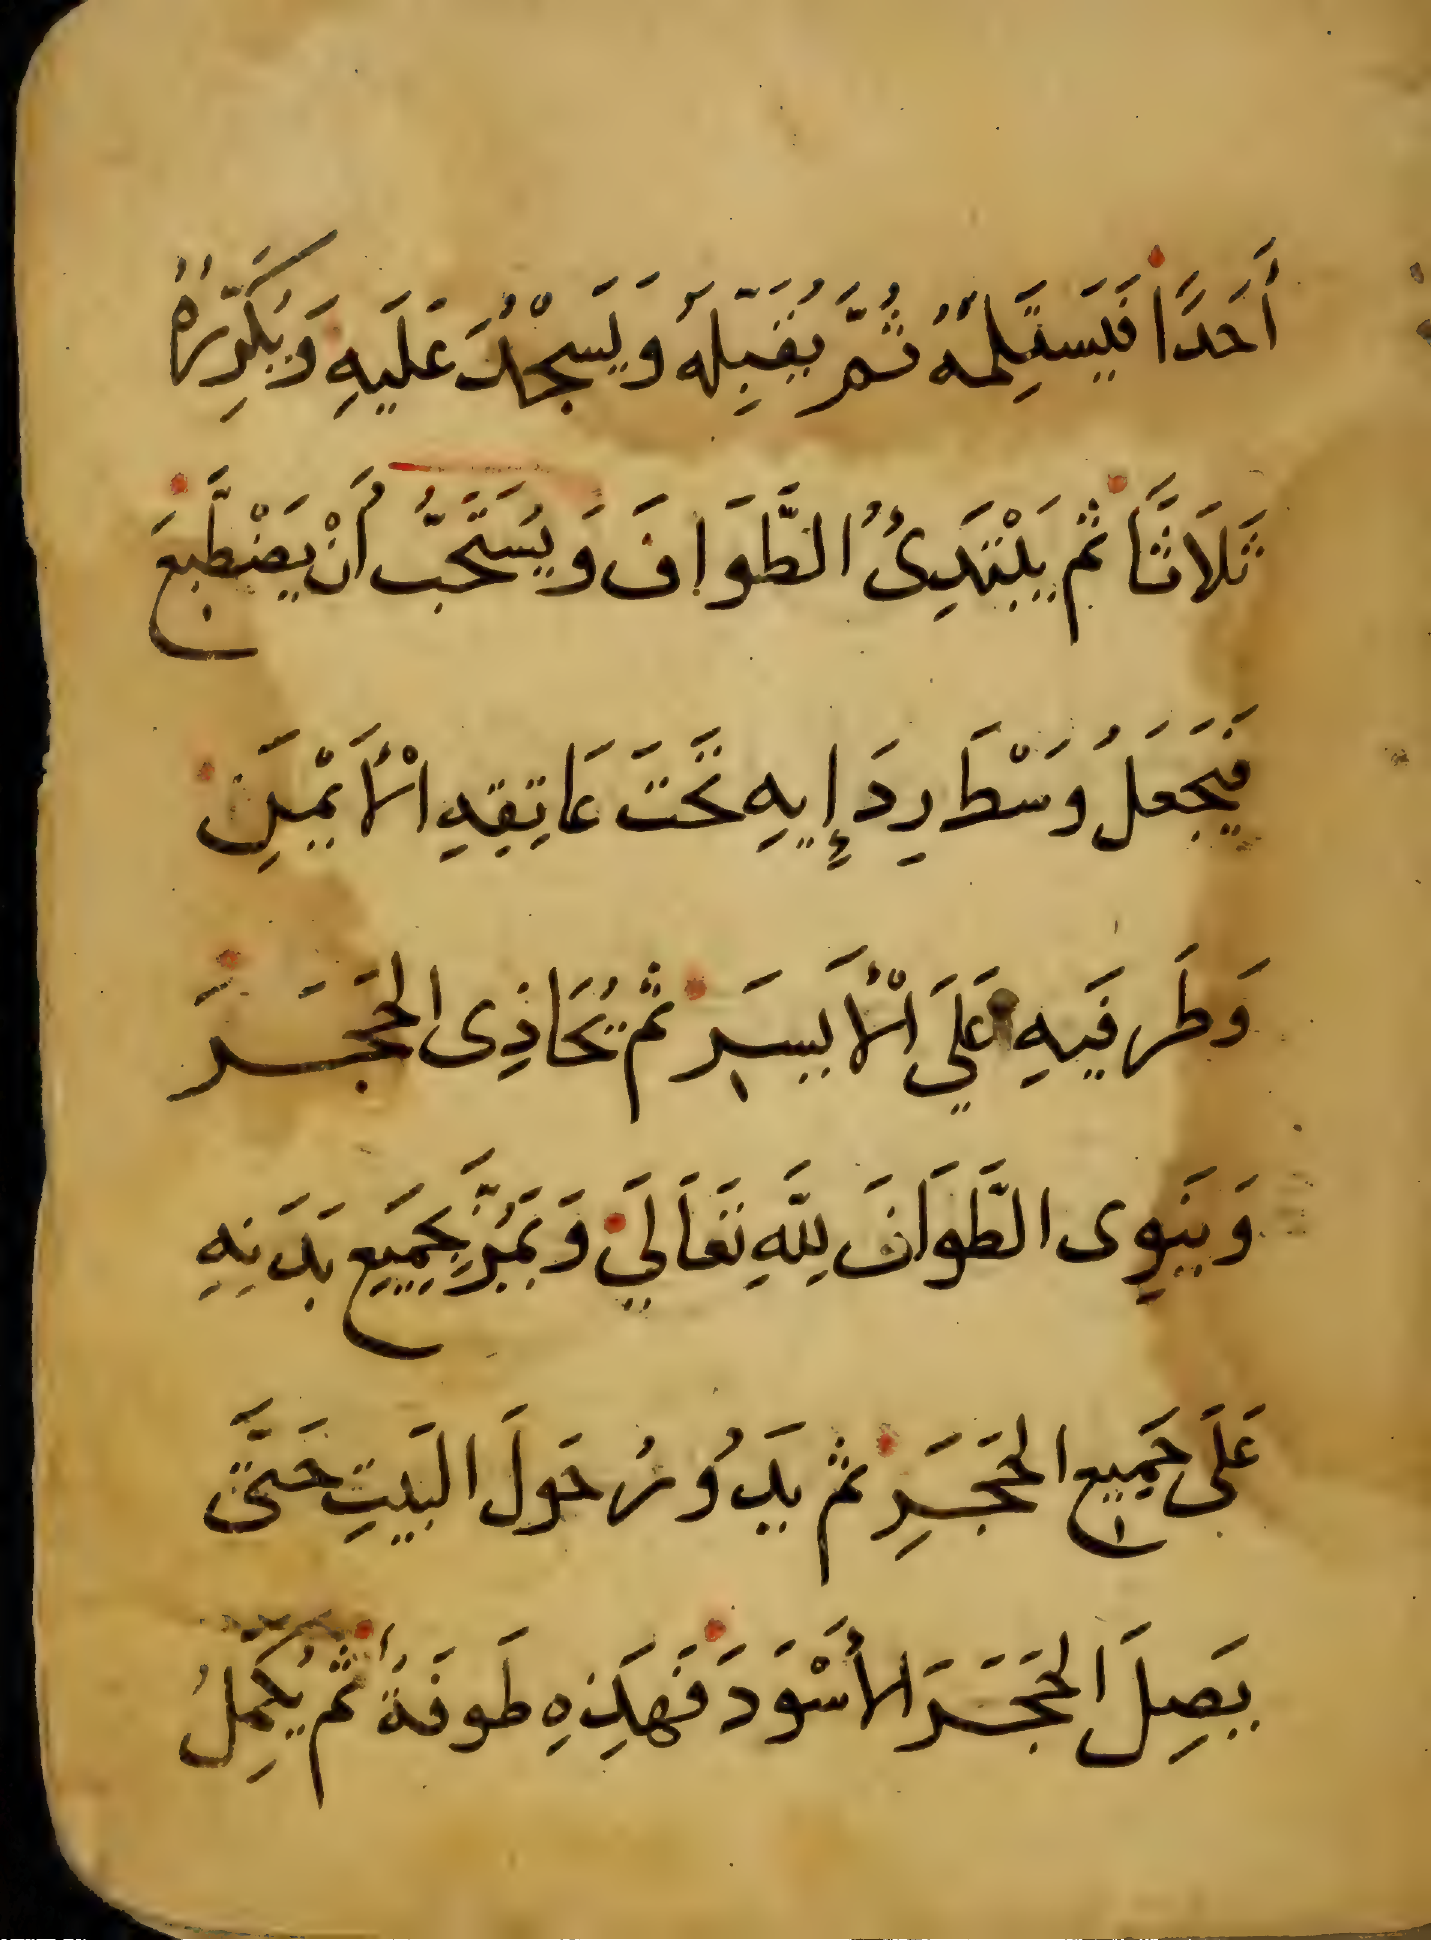 أَحَدًا فَيَستَلِمُهُ ثُمَّ يُقَبِّلُهُ وَيَسْجُدُ عَلَيهِ وَيُكَرِّرُهُ
ثَلَاثًا ثم يَبْتَدِئُ الطَّوَافَ وَيُستَحَبُّ أَنْ يَضْطَبِعَ
فَيَجعَلُ وَسْطَ رِدَإِيهِ تَحَتَ عَاتِقِهِ الْأَيْمَنِ
وَطَرفَيهِ عَلَى الْأَيسَرِ ثم يُحَاذِى الحَجَرَ
وَيَنوِى الطَّوَافَ لِلَّهِ تَعَالَى وَيَمُرُّ بِجَمِيعِ بَدَنِهِ
عَلَى جَمِيعِ الحَجَرِ ثم يَدُورُ حَولَ البَيتِ حَتَّى
يَصِلَ الحَجَرَ الأَسْوَدَ فَهَذِهِ طَوفَةٌ ثم يُكَمِّلُ